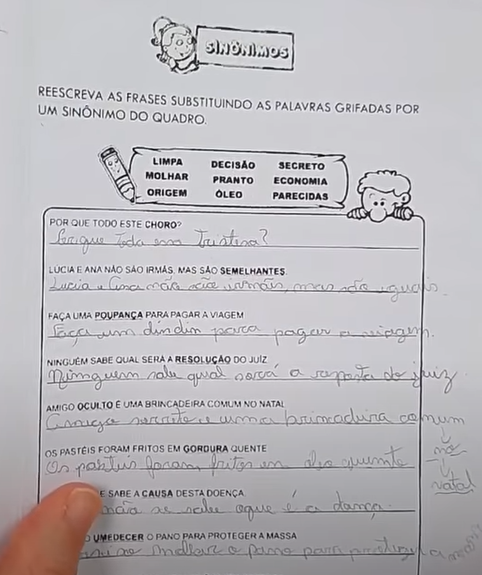 SINÔNIMOS
REESCREVA AS FRASES SUBSTITUINDO AS PALAVRAS GRIFADAS POR
UM SINÔNIMO DO QUADRO.
LIMPA DECISÃO SECRETO
MOLHAR PRANTO ECONOMIA
ORIGEM ÓLEO PARECIDAS
POR QUE TODO ESTE CHORO?
Porque toda essa tristesa?
LÚCIA E ANA NÃO SÃO IRMÃS, MAS SÃO SEMELHANTES.
Lucia e Ana não são irmãs, mas são iguais.
FAÇA UMA POUPANÇA PARA PAGAR A VIAGEM
Faça um dindin para pagar a viagem.
NINGUÉM SABE QUAL SERÁ A RESOLUÇÃO DO JUÍZ
Ninguem sabe qual será a reposta do juiz
AMIGO OCULTO É UMA BRINCADEIRA COMUM NO NATAL
Amigo secreto e uma brincadeira comum
no
natal
OS PASTÉIS FORAM FRITOS EM GORDURA QUENTE
Os pasteis foram fritos em oleo quente
E SABE A CAUSA DESTA DOENÇA
não se sabe oque é a
O UMEDECER O PANO PARA PROTEGER A MASSA
molhar o pano para a